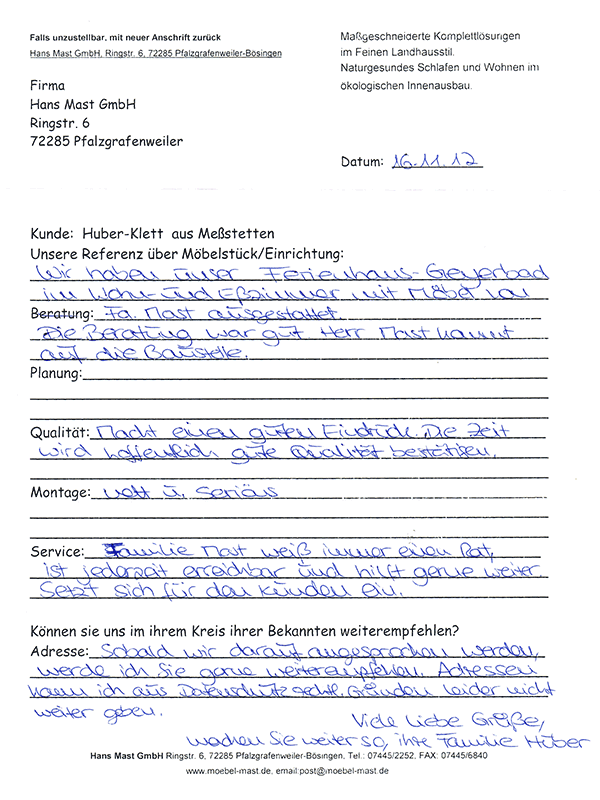 Falls unzustellbar, mit neuer Anschrift zurück
Hans Mast GmbH, Ringstr. 6, 72285 Pfalzgrafenweiler-Bösingen
Maßgeschneiderte Komplettlösungen
im Feinen Landhausstil.
Naturgesundes Schlafen und Wohnen im
ökologischen Innenausbau.
Firma
Hans Mast GmbH
Ringstr. 6
72285 Pfalzgrafenweiler
Datum: 16.11.12
Kunde: Huber-Klett aus Meßstetten
Unsere Referenz über Möbelstück/Einrichtung:
Wir haben unser Ferienhaus-Geyerbad
im Wohn- und Eßzimmer mit Möbel von
Beratung: Fa. Mast ausgestattet.
Die Beratung war gut Herr Mast kommt
auf die Baustelle.
Planung:
Qualität: Macht einen guten Eindruck. Die Zeit
wird hoffentlich gute Qualität bestätigen.
Montage: nett u. seriös
Service: Familie Mast weiß immer einen Rat,
ist jederzeit erreichbar und hilft gerne weiter.
Setzt sich für den Kunden ein.
Können sie uns im ihrem Kreis ihrer Bekannten weiterempfehlen?
Adresse: Sobald wir darauf angesprochen werden,
werde ich Sie gerne weiterempfehlen. Adressen
kann ich aus Datenschutzrechtl. Gründen leider nicht
weiter geben.
Viele Liebe Grüße,
machen Sie weiter so, ihre Familie Huber
Hans Mast GmbH Ringstr. 6, 72285 Pfalzgrafenweiler-Bösingen, Tel.: 07445/2252, FAX: 07445/6840
www.moebel-mast.de, email:post@moebel-mast.de